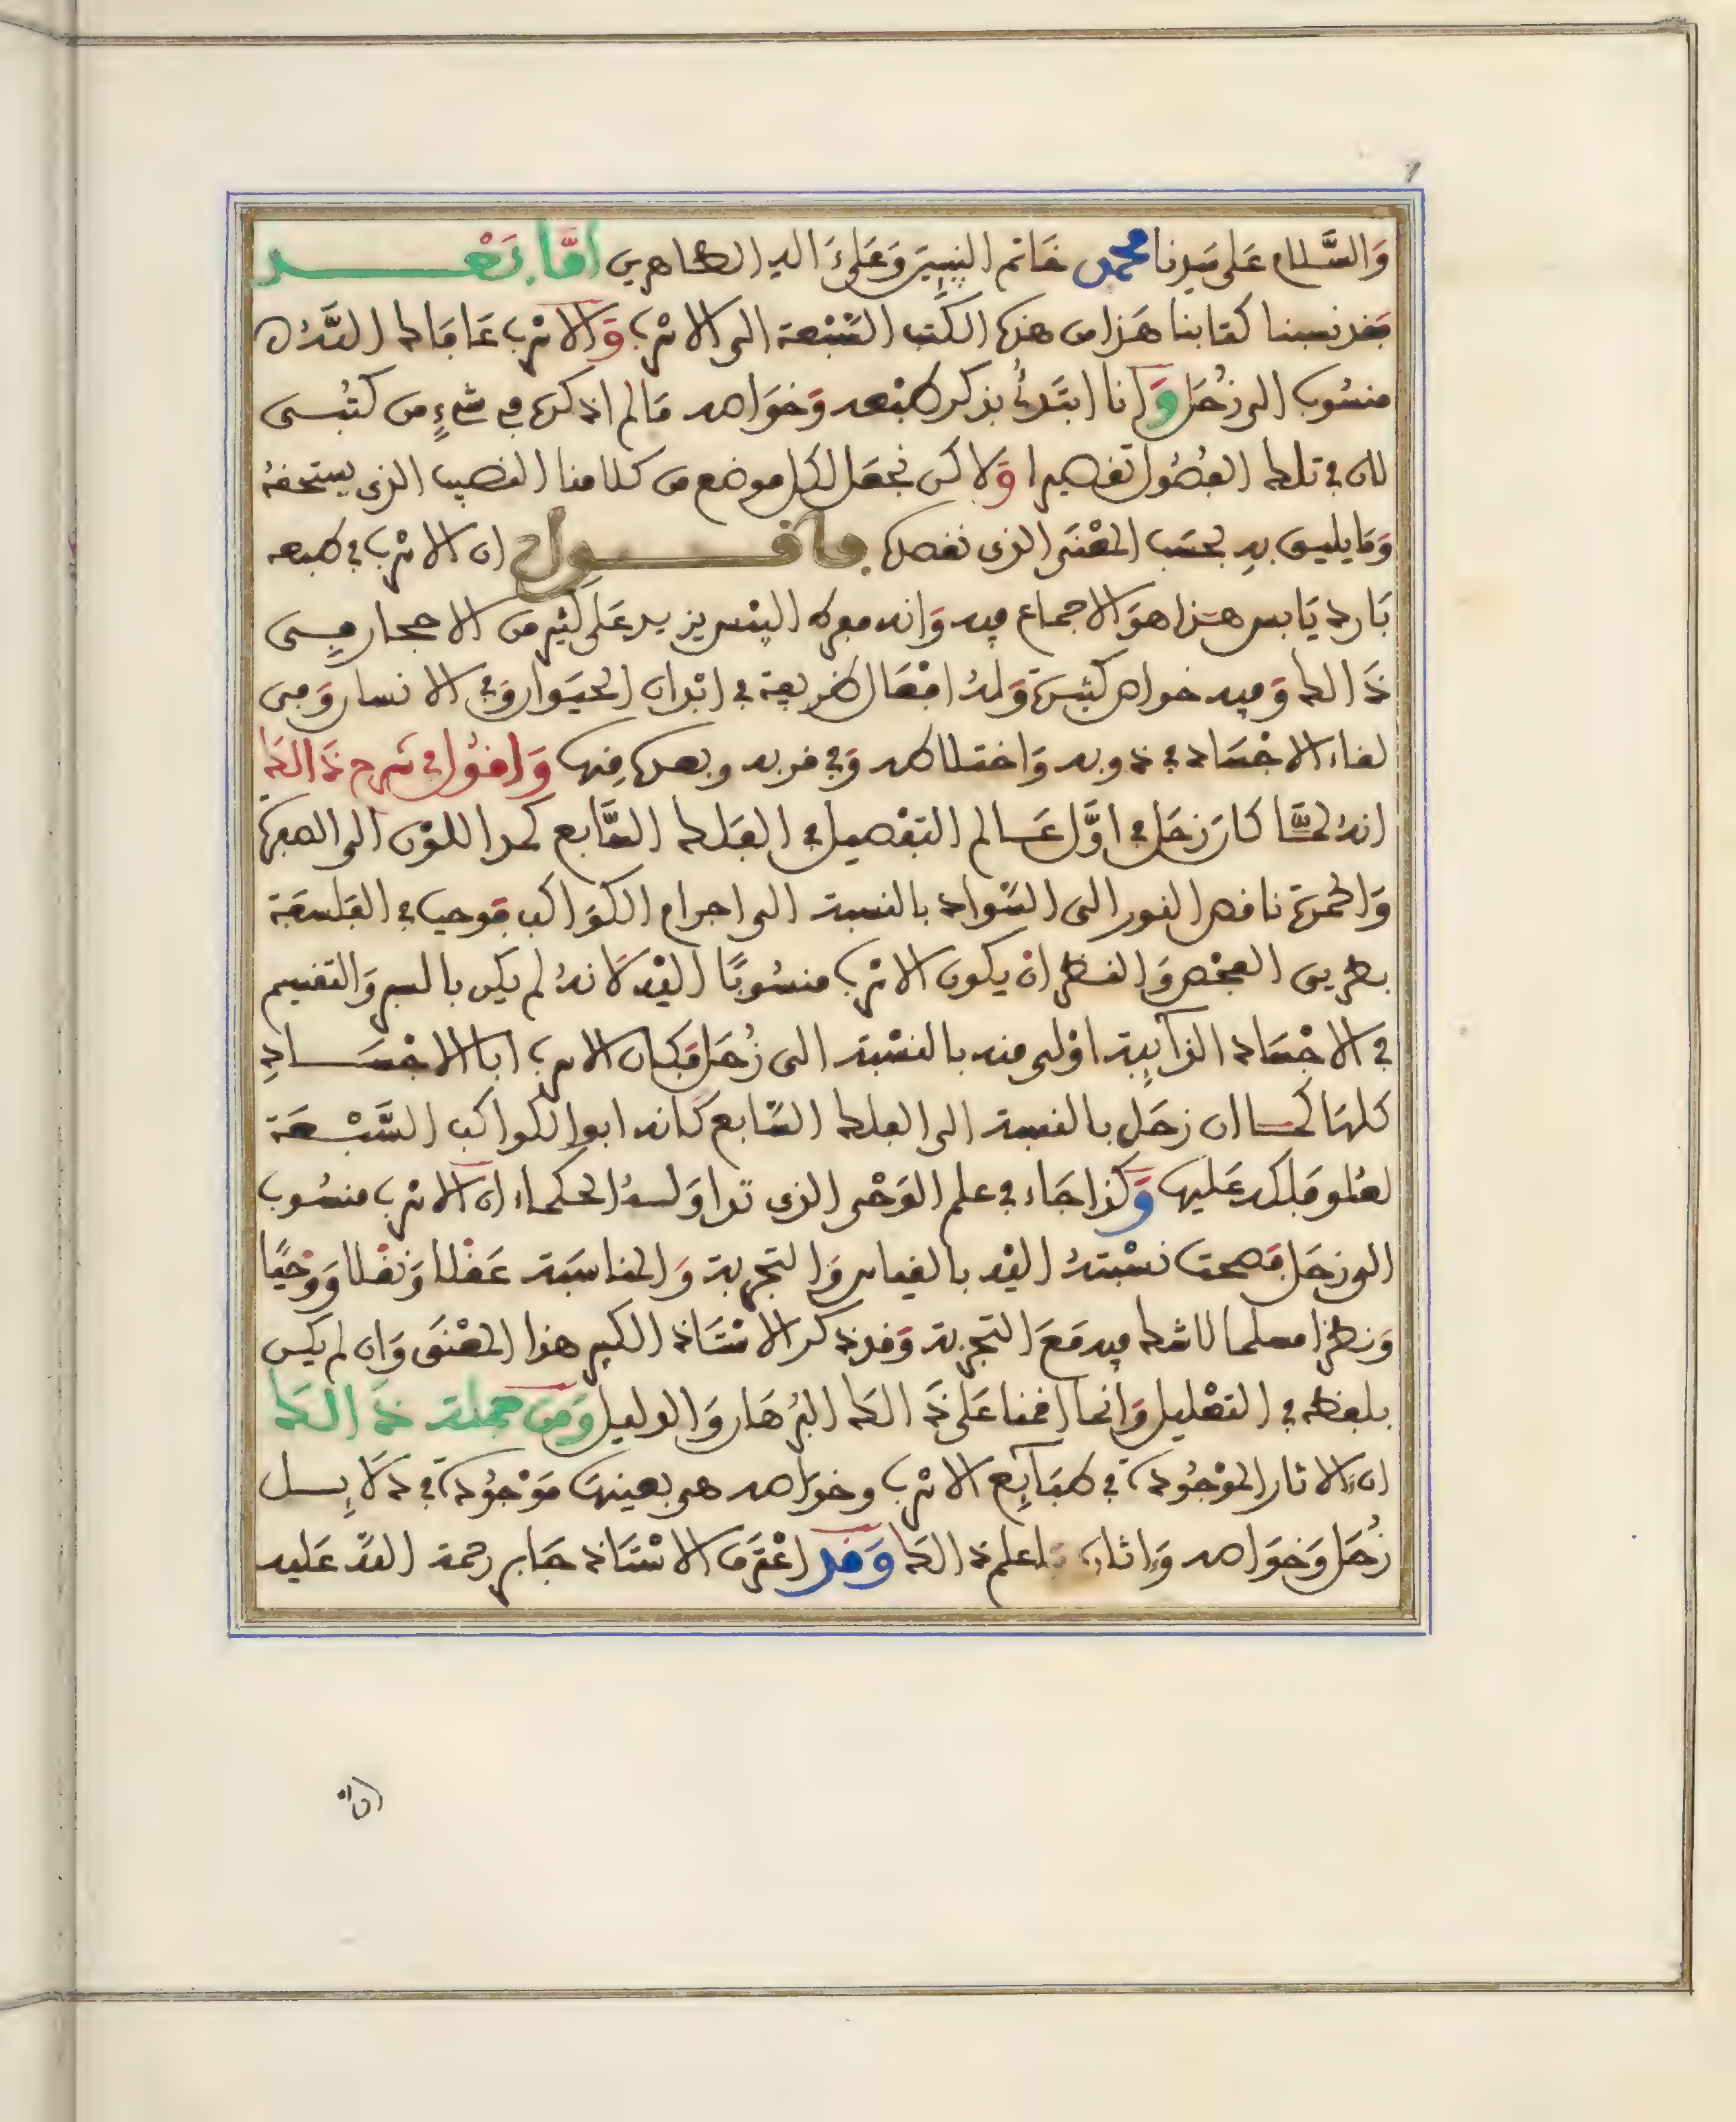 وَالسَّلام عَلى سَيدنا محمد خَاتم النبيِيَن وَعَلىَ اله الطاهرين امَّا بَعْد
فقد نسبنا كتابنا هَذا من هذه الكُتب السَّبْعة الى الاسْرب وَالاسْرب عَا مَا لك الله
منسُوب الى زُحَل وَانا ابتَدئُ بذكر طبْعه وَخوَاصه مَا لم اذكره في شيْءٍ من كتُبى
لان في تلك الفصُول تقصيرا وَلاكن نجعَل لكل موضع من كلامنا النصيب الذى يستحقهُ
وَمَا يليق بهِ بحسَب المعْنَى الذى نقصده فاقول ان الاسْرب في طبعه
بَارد يَابس هذا هوَ الاجماع فيه وَانه مفرط اليبْس يزيد عَلى كثير من الاحجار في
ذَالك وَفيه خواص كثيرَة وَلهُ افعَال ظريفة في ابْدان الحيَوان وَفي الانسان وَفى
لقاء الاجْسَاد في ذوبه وَاختلاطه وَفي قربه وبعده مِنها وَاقوُل في شرح ذَالك
انهُ لمَّا كان زحَل في اوَّل عَالم التفْصيل في الفلك السَّابع كمد اللوْن الى الصفرة
وَالحمرَة ناقص النور الى السَّواد بالنسبة الى اجرام الكوَاكب فوجب في الفلسفَة
بطريق الفحْص وَالنظر انْ يكون الاسْرب منسُوبًا اليْه لَانهُ لم يكن بالسبر وَالتقسيم
في الاجْسَاد الذآئِبة اوْلى منه بالنسْبة الى زُحَل فكان الاسرب ابا الاجْسَادِ
كلهَا كما ان زحَل بالنسبة الى الفلك السَّابع كَانه ابو الكواكب السَّبْعَة
لعُلو فلكه عَليها وَكذا جَاء في علم الوَحْى الذى تداوَلتهُ الحكماء ان الاسْرب منسُوب
الى زحَل فصحت نسْبتهُ اليْه بالقياس وَالتجربة وَالمناسَبة عَقْلا وَنقْلا وَوحْيًا
وَنظرًا مسلما لا شك فيه مَعَ التجربة وَقد ذكر الاسْتَاذ الكبير هذا المعْنَى وَان لم يكن
بلفظه في التعْليل وَانما اقمنا عَلى ذَالك البُرهَان وَالدليل وَمن جملة ذَالك
ان الاثار الموْجُودة في طبَآئِع الاسْرب وخوَاصه هى بعينها مَوْجُودة في دَلَائِل
زُحَل وَخوَاصه وَاثاره فاعلم ذالك وَقد اعْترَف الاسْتَاذ جَابر رحمة اللهَ عَليه
ان